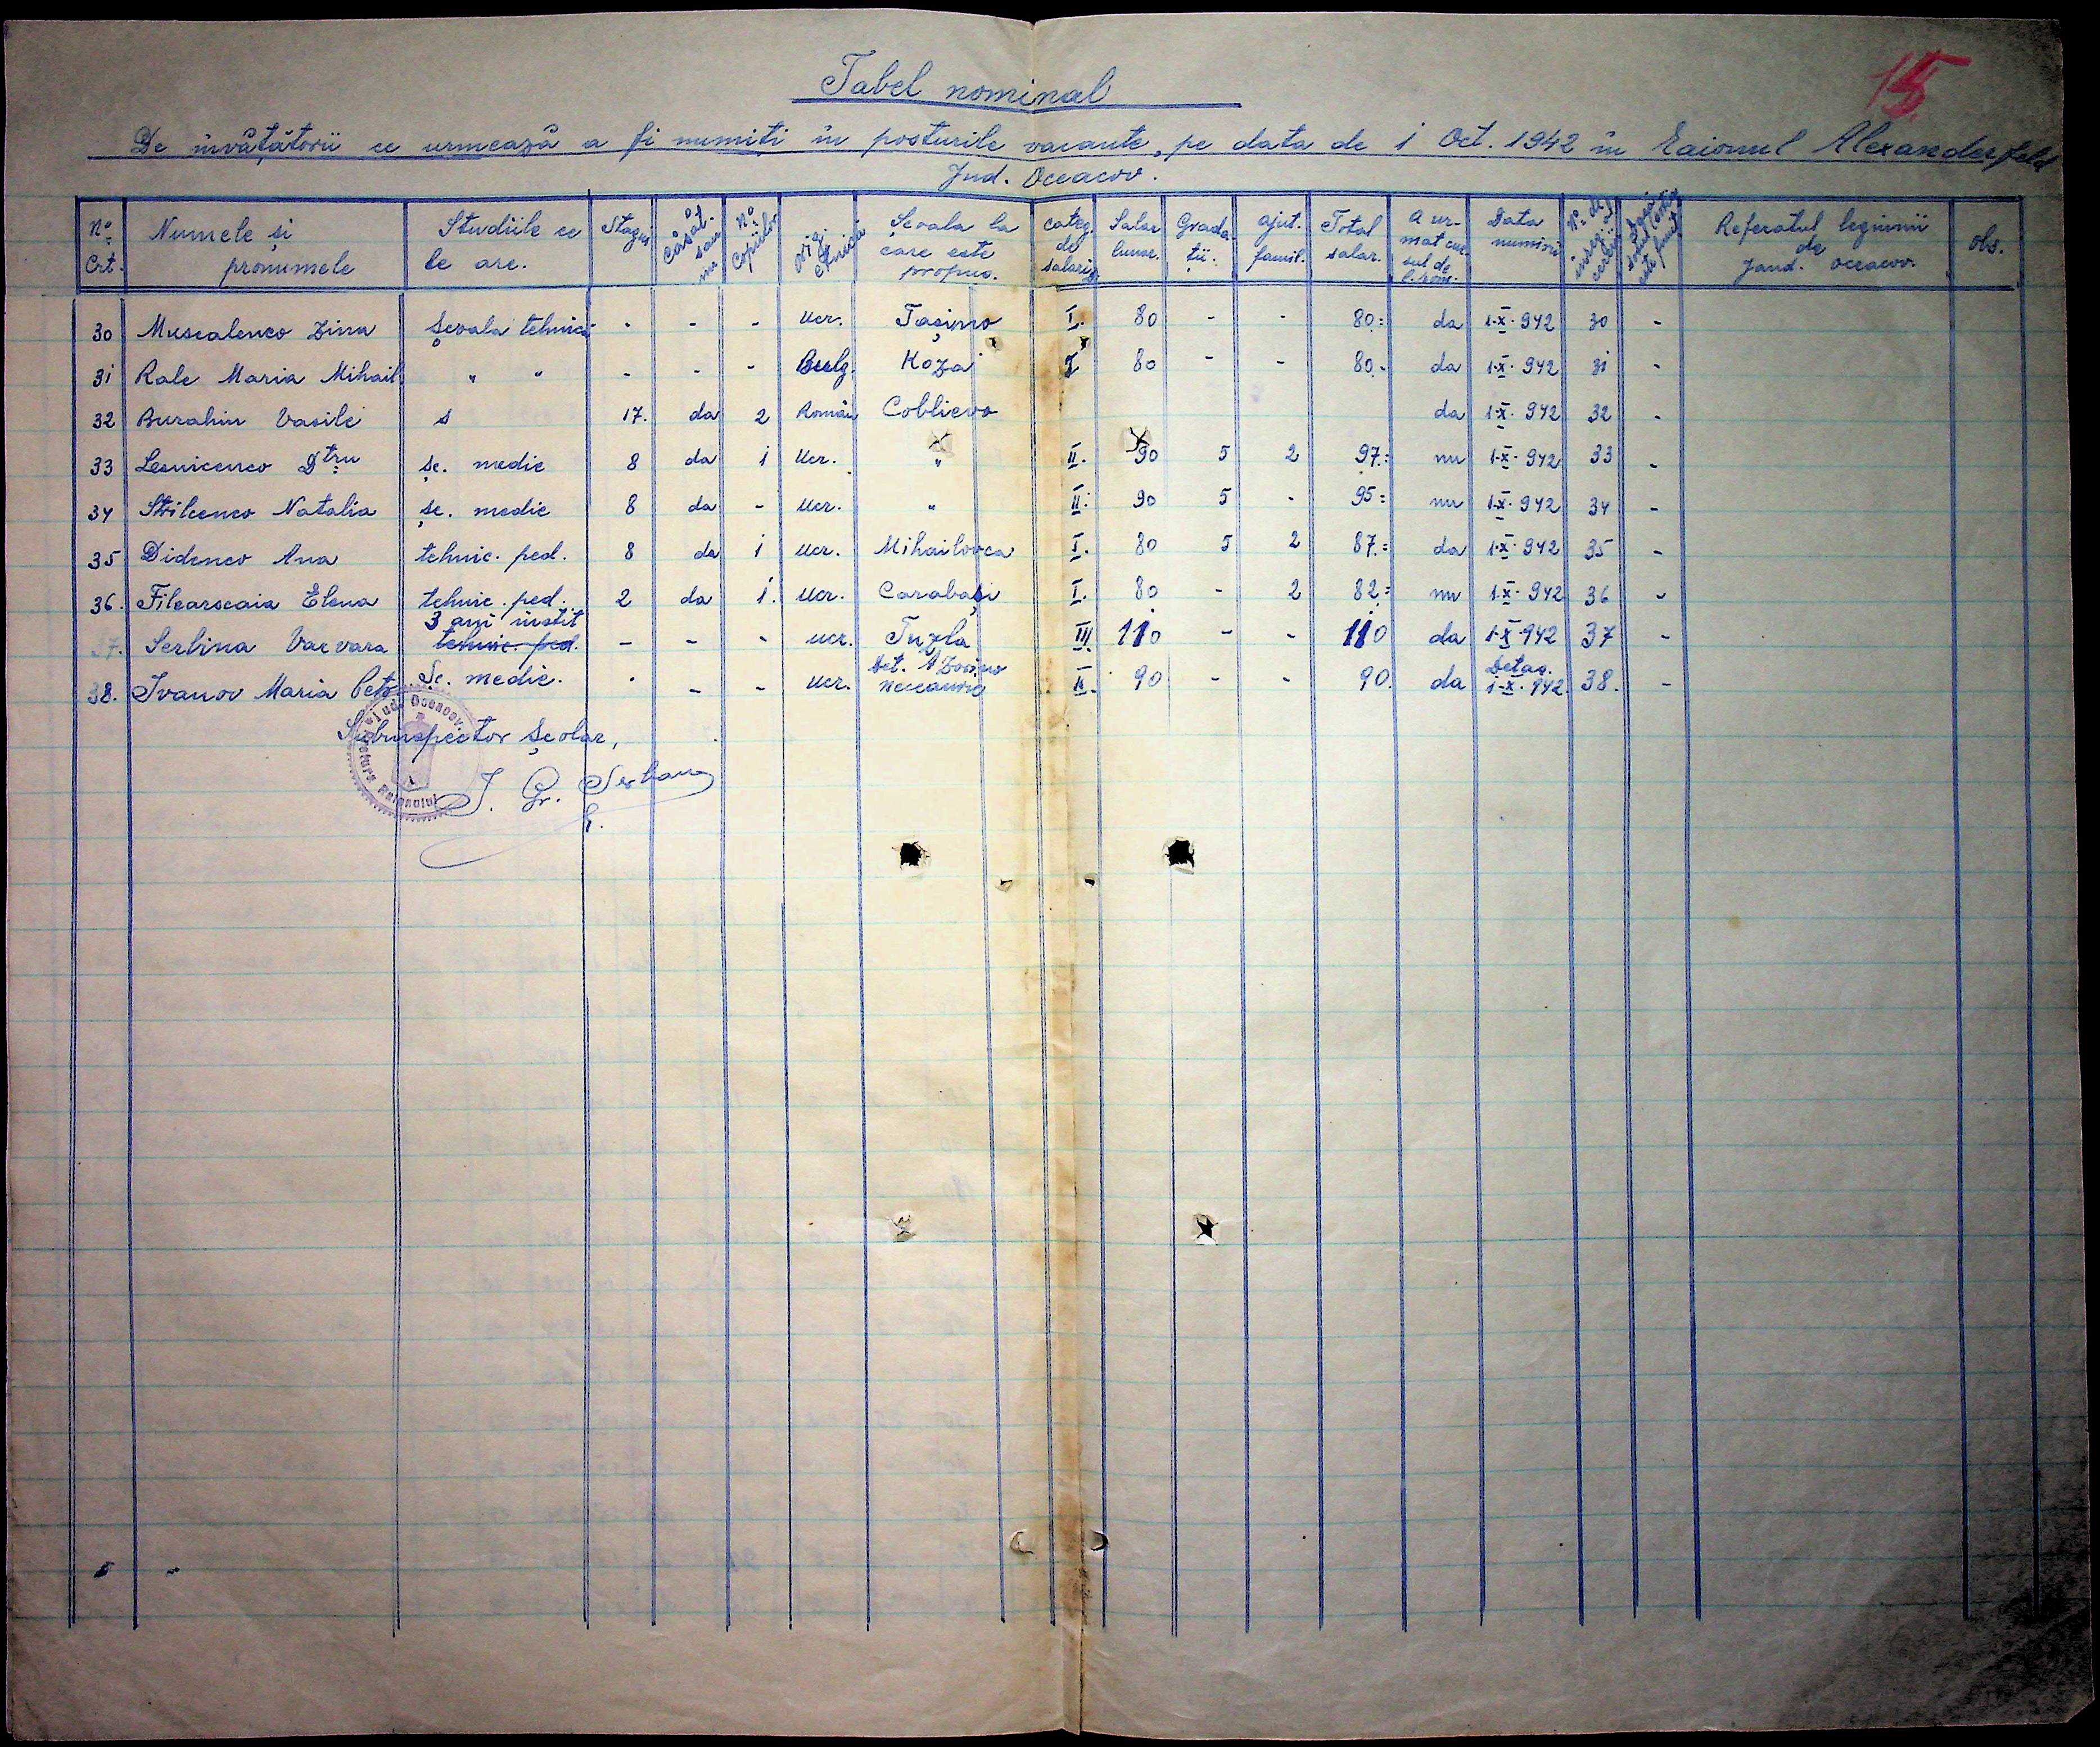 15
Tabel nominal
De învătătorii ce urmează a fi numiti în posturile vacante, pe data de 1 Oct. 1942 în Raionul Alexanderfeld
Jud. Oceacov.
No Crt. | Numele și pronumele | Studiile ce le are. | Stagiu | Căsăt. sau nu | No Copiilor | orig. etnică | Scoala la care este propus. | categ. de salariz. | Salar lunar. | Grada-tii. | ajut. famil. | Total salar. | a ur-mat cur-sul de l. rom. | Data numirii | No de inreg. a cererii | Dacă sotul este funct. | Referatul legiunii de Jand. Oceacov. | obs.
30 Muscalenco Zina Școala tehnică - - - Ucr. Tașino I. 80 - - 80.= da 1.X.942 30 -
31 Rale Maria Mihail " " - - - Bulg. Koza I 80 - - 80.- da 1.X.942 31 -
32 Burahin Vasile s 17. da 2 Român Coblievo da 1.X.942 32 -
33 Lesnicenco Dtru șc. medie 8 da 1 Ucr. " II. 90 5 2 97.= nu 1.X.942 33 -
34 Strilcenco Natalia șc. medie 8 da - Ucr. " II. 90 5 - 95= nu 1.X.942 34 -
35 Didenco Ana tehnic. ped. 8 da 1 Ucr. Mihailovca I. 80 5 2 87.= da 1.X.942 35 -
36. Filearscaia Elena tehnic. ped. 2 da 1. Ucr. Carabași I. 80 - 2 82.= nu 1.X.942 36 -
3 ani instit
37. Serbina Varvara tehnic. ped. - - - ucr. Tuzla III. 110 - - 110 da 1.X.942 37 -
Det. Detaș.
38. Ivanov Maria Șc. medie. - - - ucr. II. 90 - - 90. da 1.X.942 38. -
Subinspector Școlar,
Jud. Oceacov
Raionului
I. Gr. Serban